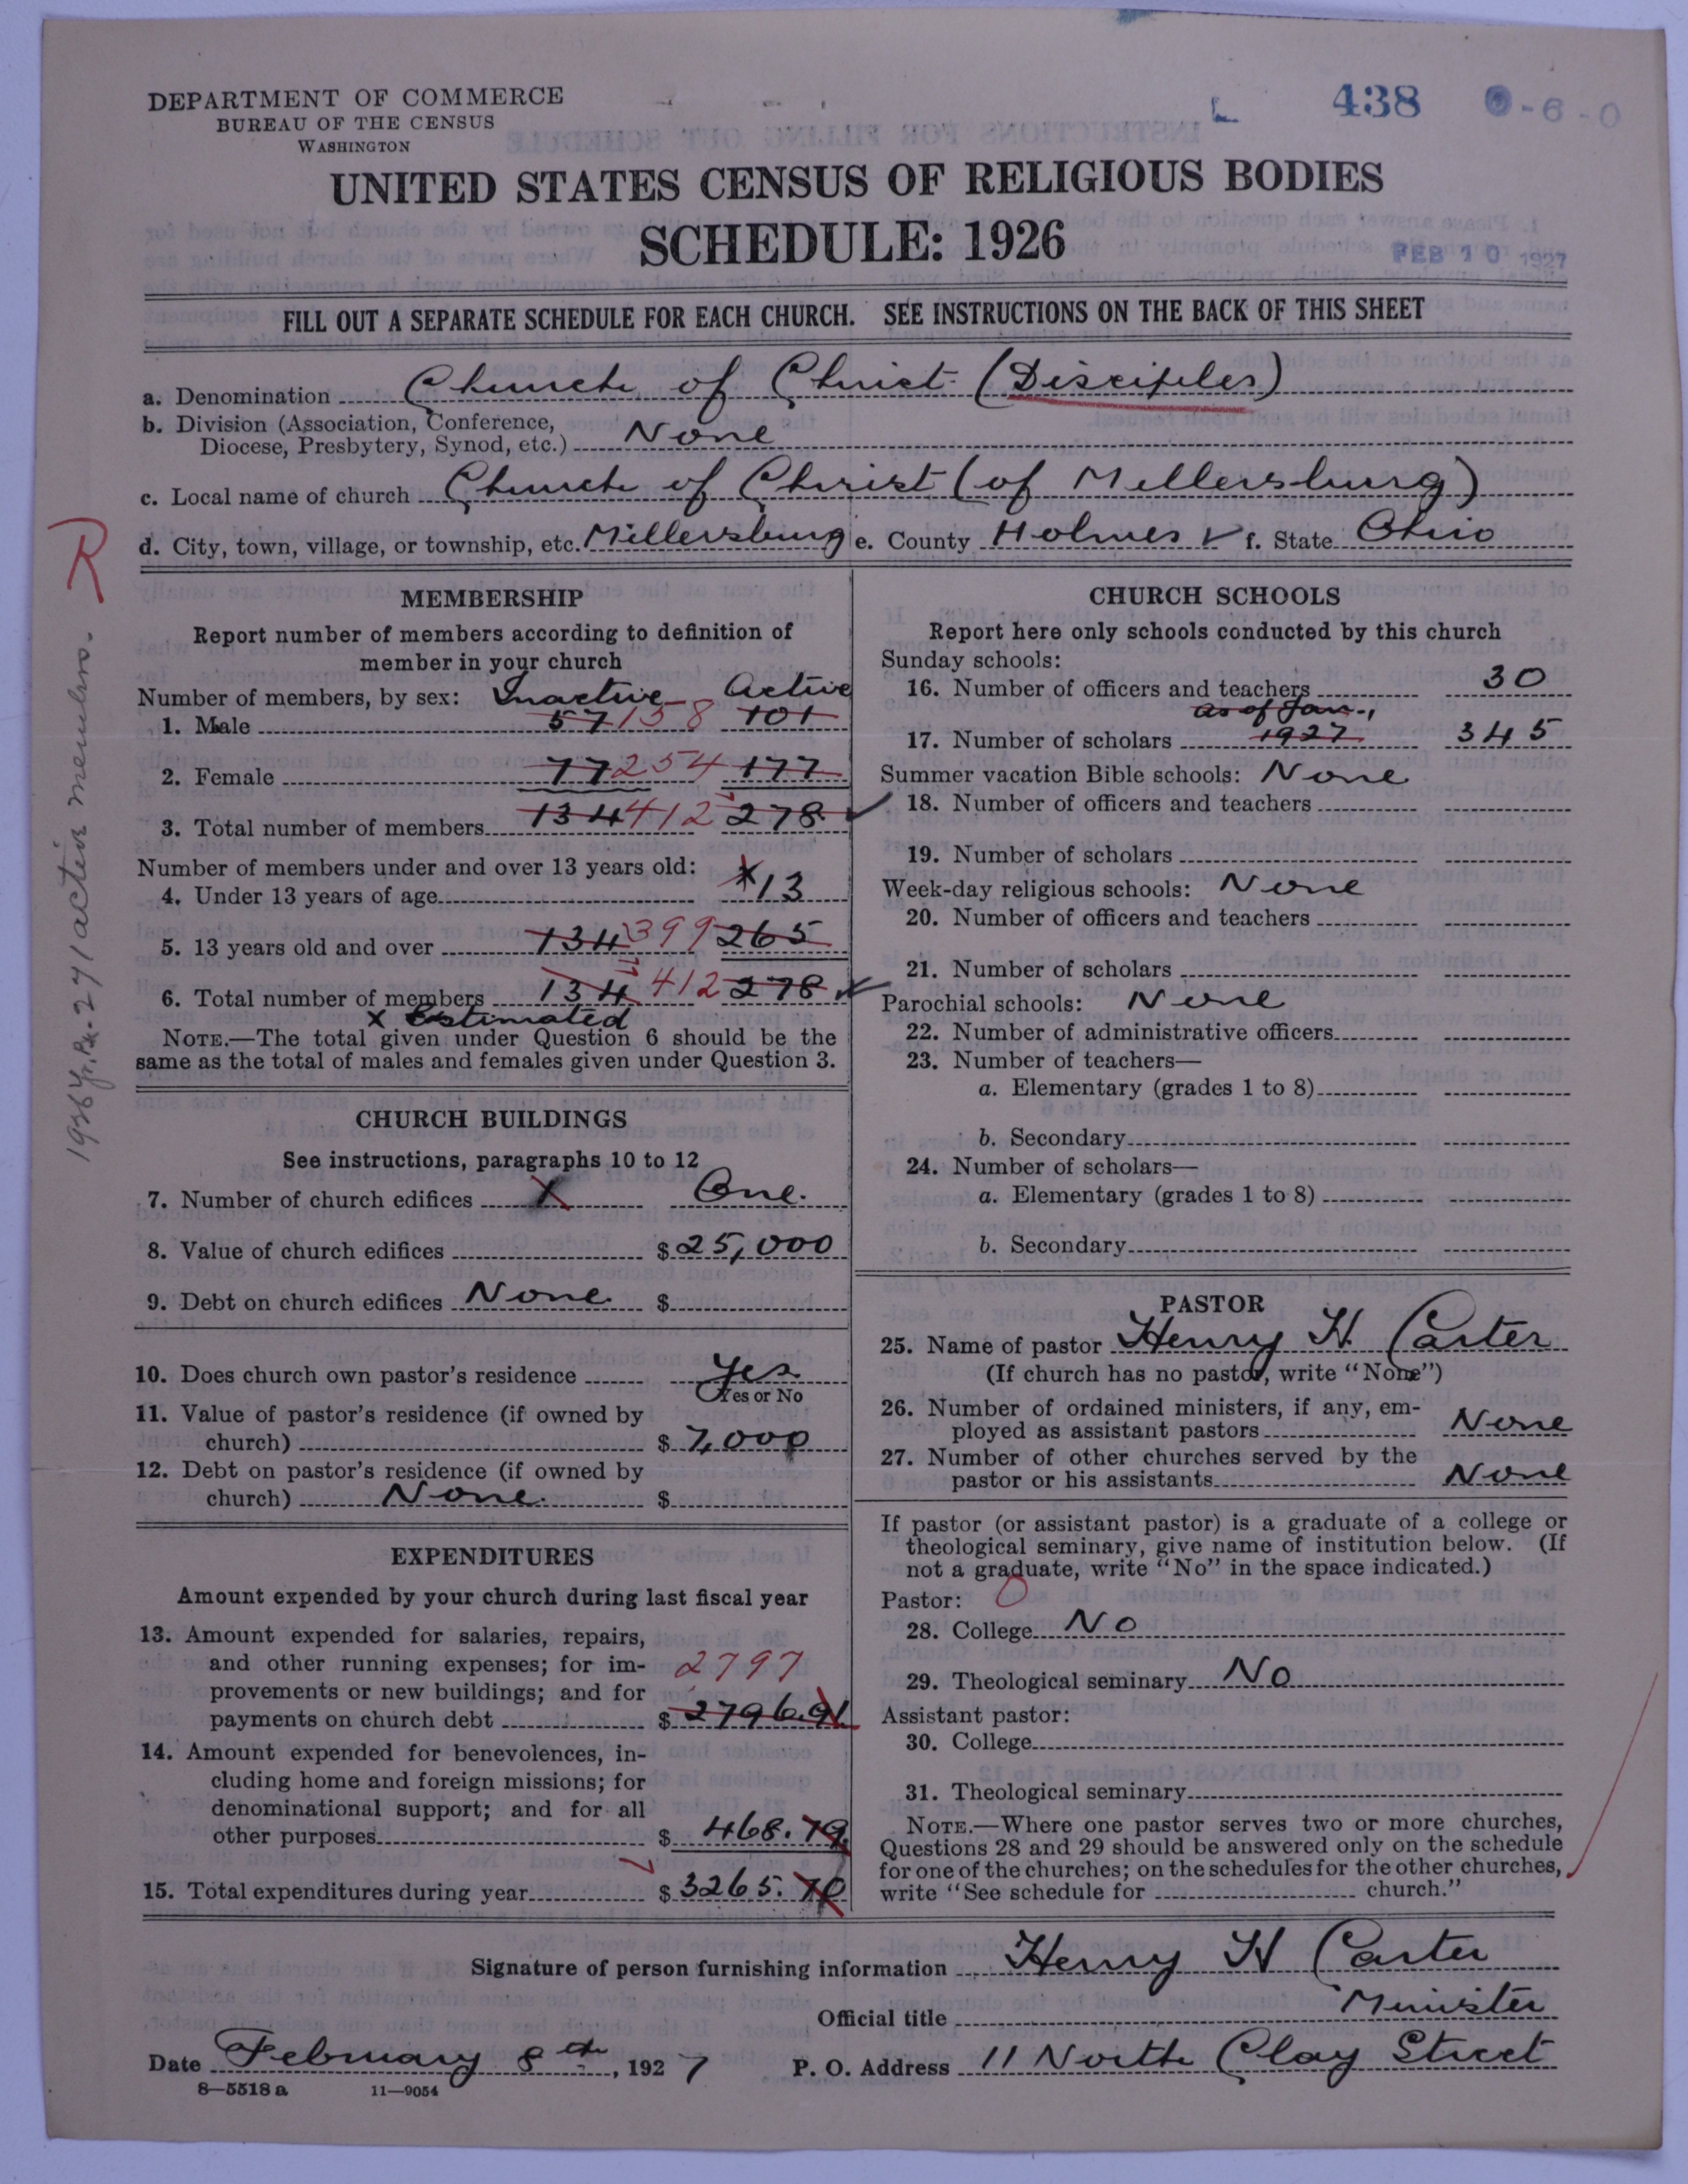 DEPARTMENT OF COMMERCE
BUREAU OF THE CENSUS
WASHINGTON
438
-6-0
UNITED STATES CENSUS OF RELIGIOUS BODIES
SCHEDULE: 1926
FEB 10 1927
FILL OUT A SEPARATE SCHEDULE FOR EACH CHURCH. SEE INSTRUCTIONS ON THE BACK OF THIS SHEET
a. Denomination Church of Christ (Disciples)
b. Division (Association, Conference,
Diocese, Presbytery, Synod, etc.) None
c. Local name of church Church of Christ (of Millersburg)
d. City, town, village, or township, etc. Millersburg e. County Holmes f. State Ohio
R
1926 Yr. Bk. - 271 active members.
MEMBERSHIP
Report number of members according to definition of
member in your church
Number of members, by sex: Inactive Active
1. Male 57 158 101
2. Female 77 254 177
3. Total number of members 134 412 278
Number of members under and over 13 years old:
4. Under 13 years of age x 13
5. 13 years old and over 134 399 265
6. Total number of members 134 412 278
x Estimated
NOTE.—The total given under Question 6 should be the
same as the total of males and females given under Question 3.
CHURCH BUILDINGS
See instructions, paragraphs 10 to 12
7. Number of church edifices 1 One.
8. Value of church edifices $ 25,000
9. Debt on church edifices None $
10. Does church own pastor's residence Yes
Yes or No
11. Value of pastor's residence (if owned by
church) $ 7,000
12. Debt on pastor's residence (if owned by
church) None. $
EXPENDITURES
Amount expended by your church during last fiscal year
13. Amount expended for salaries, repairs,
and other running expenses; for im- 2797
provements or new buildings; and for
payments on church debt $ 2796.91
14. Amount expended for benevolences, in-
cluding home and foreign missions; for
denominational support; and for all
other purposes $ 468.79
15. Total expenditures during year $ 3265.70
CHURCH SCHOOLS
Report here only schools conducted by this church
Sunday schools:
16. Number of officers and teachers 30
as of Jan.,
17. Number of scholars 1927 345
Summer vacation Bible schools: None
18. Number of officers and teachers
19. Number of scholars
Week-day religious schools: None
20. Number of officers and teachers
21. Number of scholars
Parochial schools: None
22. Number of administrative officers
23. Number of teachers—
a. Elementary (grades 1 to 8)
b. Secondary
24. Number of scholars—
a. Elementary (grades 1 to 8)
b. Secondary
PASTOR
25. Name of pastor Henry H. Carter
(If church has no pastor, write "None")
26. Number of ordained ministers, if any, em-
ployed as assistant pastors None
27. Number of other churches served by the
pastor or his assistants None
If pastor (or assistant pastor) is a graduate of a college or
theological seminary, give name of institution below. (If
not a graduate, write "No" in the space indicated.)
Pastor: 0
28. College No
29. Theological seminary No
Assistant pastor:
30. College
31. Theological seminary
NOTE.—Where one pastor serves two or more churches,
Questions 28 and 29 should be answered only on the schedule
for one of the churches; on the schedules for the other churches,
write "See schedule for church."
Signature of person furnishing information Henry H Carter
Official title Minister
Date February 8th, 1927 P. O. Address 11 North Clay Street
8—5518a 11—9054